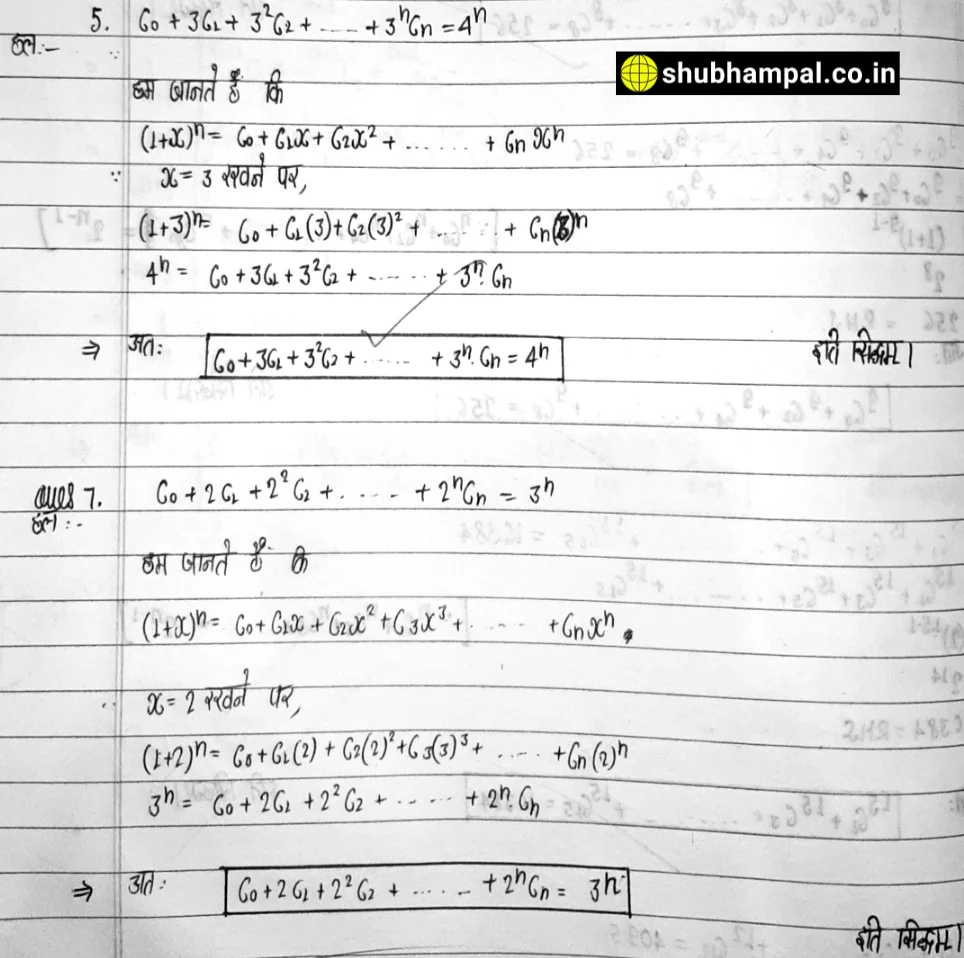 5. C₀ + 3C₁ + 3²C₂ + ..... + 3ⁿCₙ = 4ⁿ
हल:-
shubhampal.co.in
हम जानते हैं कि
(1+x)ⁿ = C₀ + C₁x + C₂x² + ...... + Cₙ xⁿ
∵ x = 3 रखने पर,
(1+3)ⁿ = C₀ + C₁(3) + C₂(3)² + ...... + Cₙ(3)ⁿ
4ⁿ = C₀ + 3C₁ + 3²C₂ + ...... + 3ⁿ. Cₙ
⇒ अतः C₀ + 3C₁ + 3²C₂ + ...... + 3ⁿ. Cₙ = 4ⁿ इति सिद्धम्।
Ques 7. C₀ + 2C₁ + 2²C₂ + ..... + 2ⁿCₙ = 3ⁿ
हल:-
हम जानते हैं कि
(1+x)ⁿ = C₀ + C₁x + C₂x² + C₃x³ + ...... + Cₙxⁿ
x = 2 रखने पर,
(1+2)ⁿ = C₀ + C₁(2) + C₂(2)² + C₃(3)³ + ..... + Cₙ(2)ⁿ
3ⁿ = C₀ + 2C₁ + 2²C₂ + ...... + 2ⁿ Cₙ
⇒ अतः C₀ + 2C₁ + 2²C₂ + ...... + 2ⁿCₙ = 3ⁿ
इति सिद्धम्।